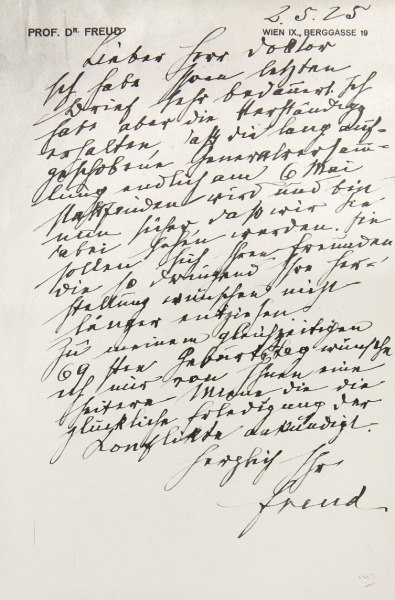 2.5.25
PROF. DR. FREUD WIEN IX., BERGGASSE 19
Lieber Herr Doktor
Ich habe Ihren letzten
Brief sehr bedauert. Ich
habe aber die Verständig
erhalten, daß die lang auf-
geschobene Generalversam-
lung endlich am 6 Mai
stattfinden wird und bin
nun sicher, daß wir Sie
dabei sehen werden. Sie
sollen sich Ihren Freunden
die so dringend Ihre Her-
stellung wünschen nicht
länger entziehen.
Zu meinem gleichzeitigen
69 sten Geburtstag wünsche
ich mir von Ihnen eine
heitere Miene die die
glückliche Erledigung der
Konflikte ankündigt.
Herzlich Ihr
Freud